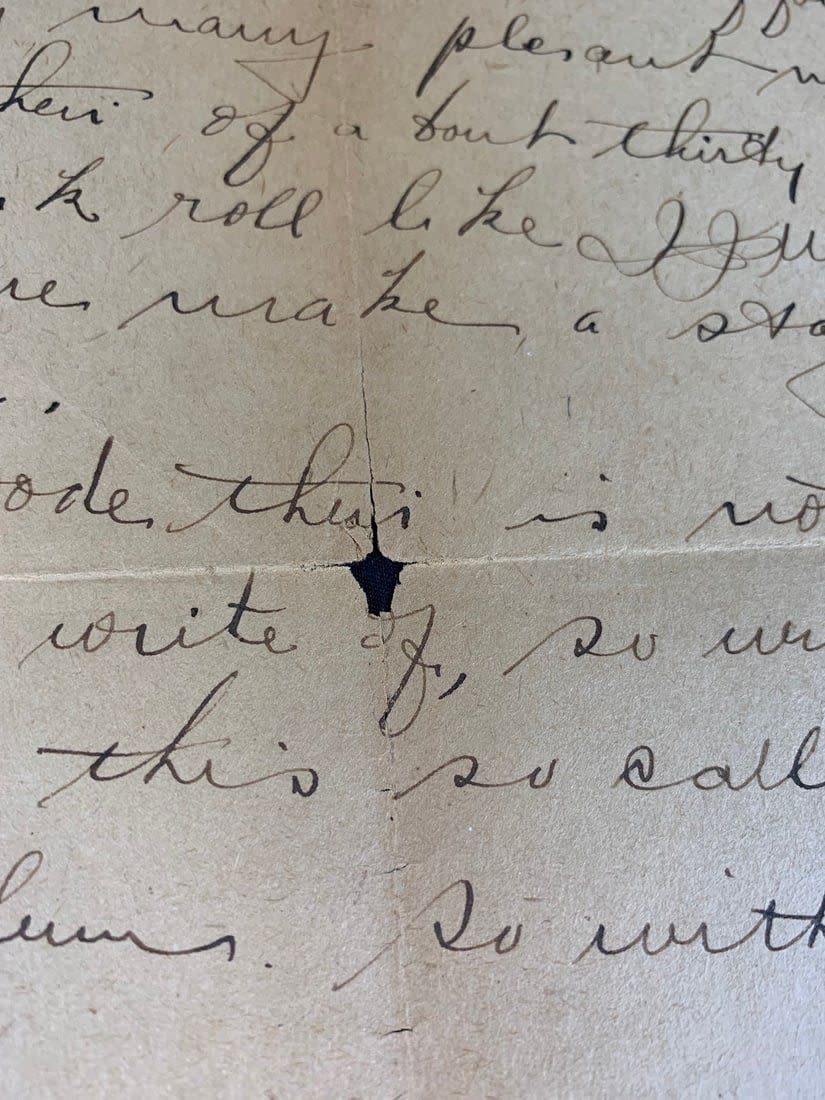 many plesant
of a bout thirty
k roll like
make a sta
ode their is no
write of, so wr
this so call
So with